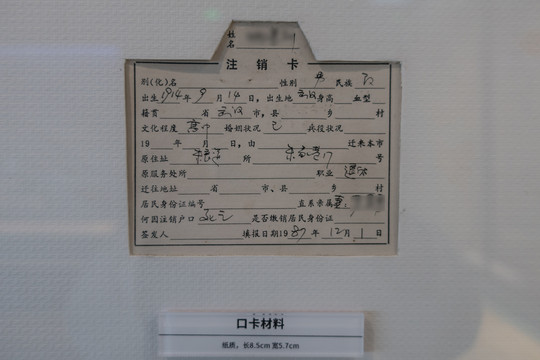 姓名
注销卡
别(化)名 性别 男 民族 汉
出生1914年9月14日，出生地 武汉 身高 血型
籍贯 省 武汉 市、县 乡 村
文化程度 高中 婚姻状况 已 兵役状况
19 年 月 日，由 迁来本市
原住址 所 号
原服务处所 职业 退休
迁往地址 省 市、县 乡 村
居民身份证编号 直系亲属
何因注销户口 死亡 是否缴销居民身份证
签发人 填报日期1987年12月1日
口卡材料
纸质，长8.5cm 宽5.7cm